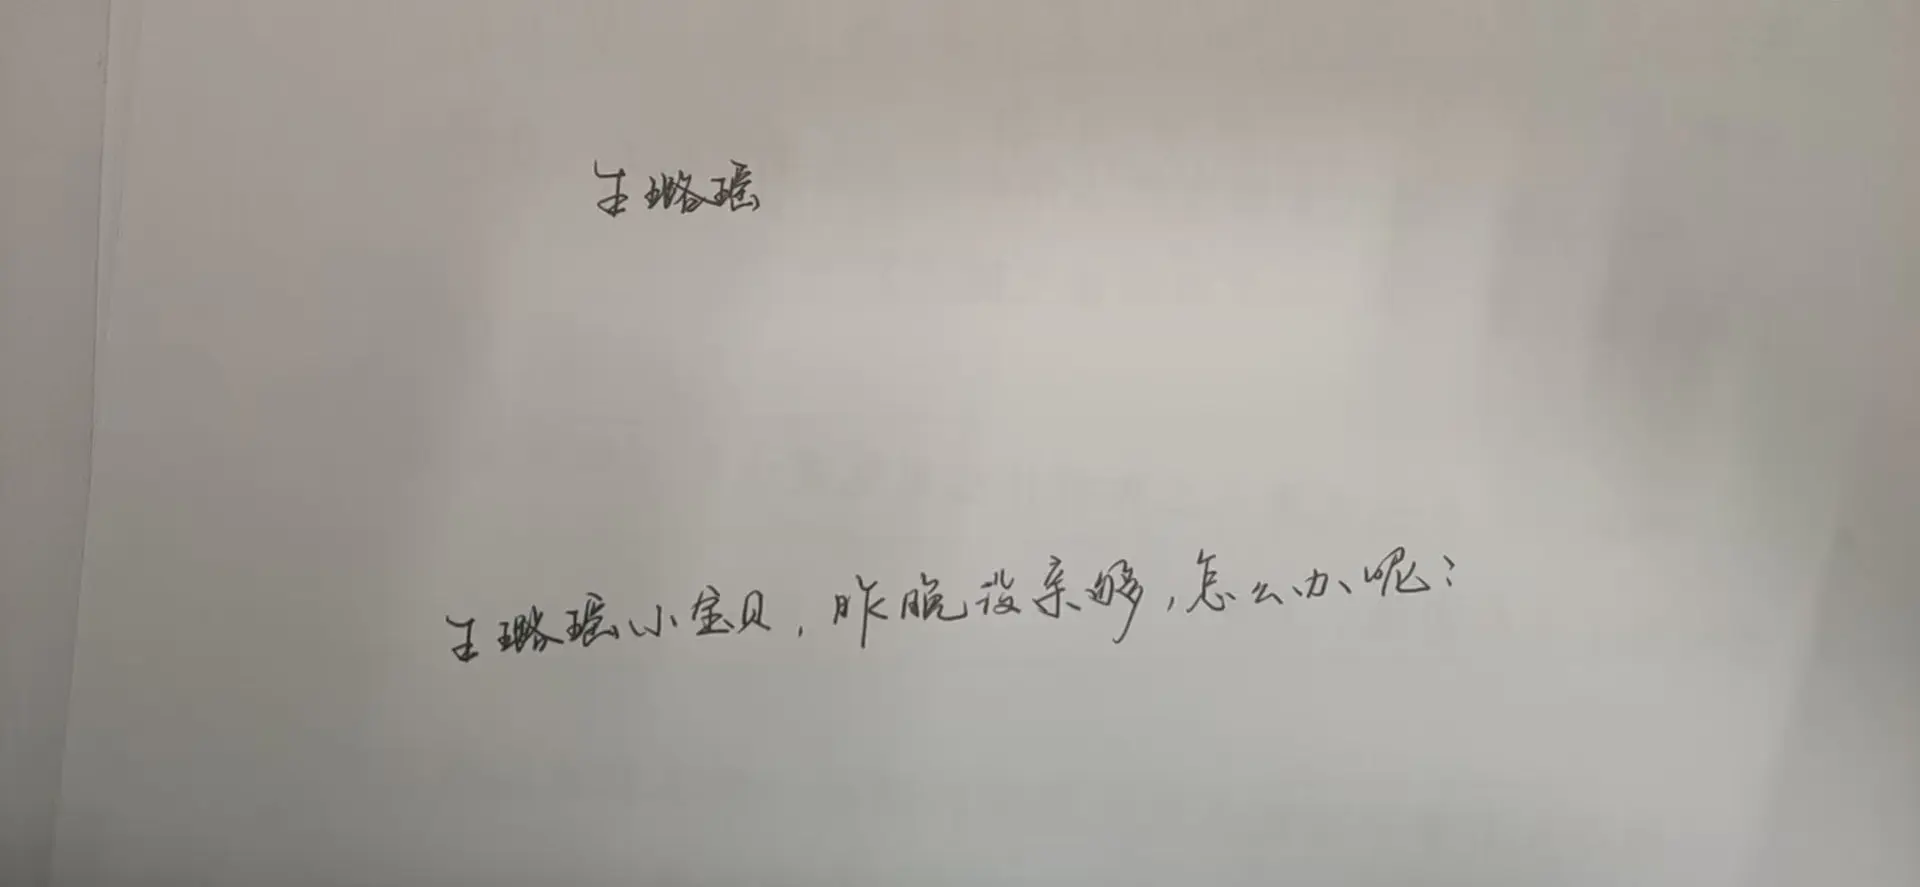 生璐瑶
生璐瑶小宝贝,昨晚没亲够,怎么办呢?